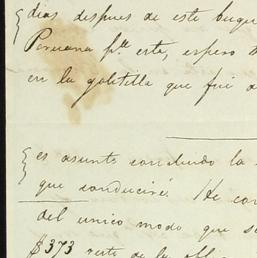 dias despues de este buqu
Peruana pª esta, espero
en la goletilla que fué
es asunto concluido la
que conduciré. He con
del unico modo que se
$373 resto de la